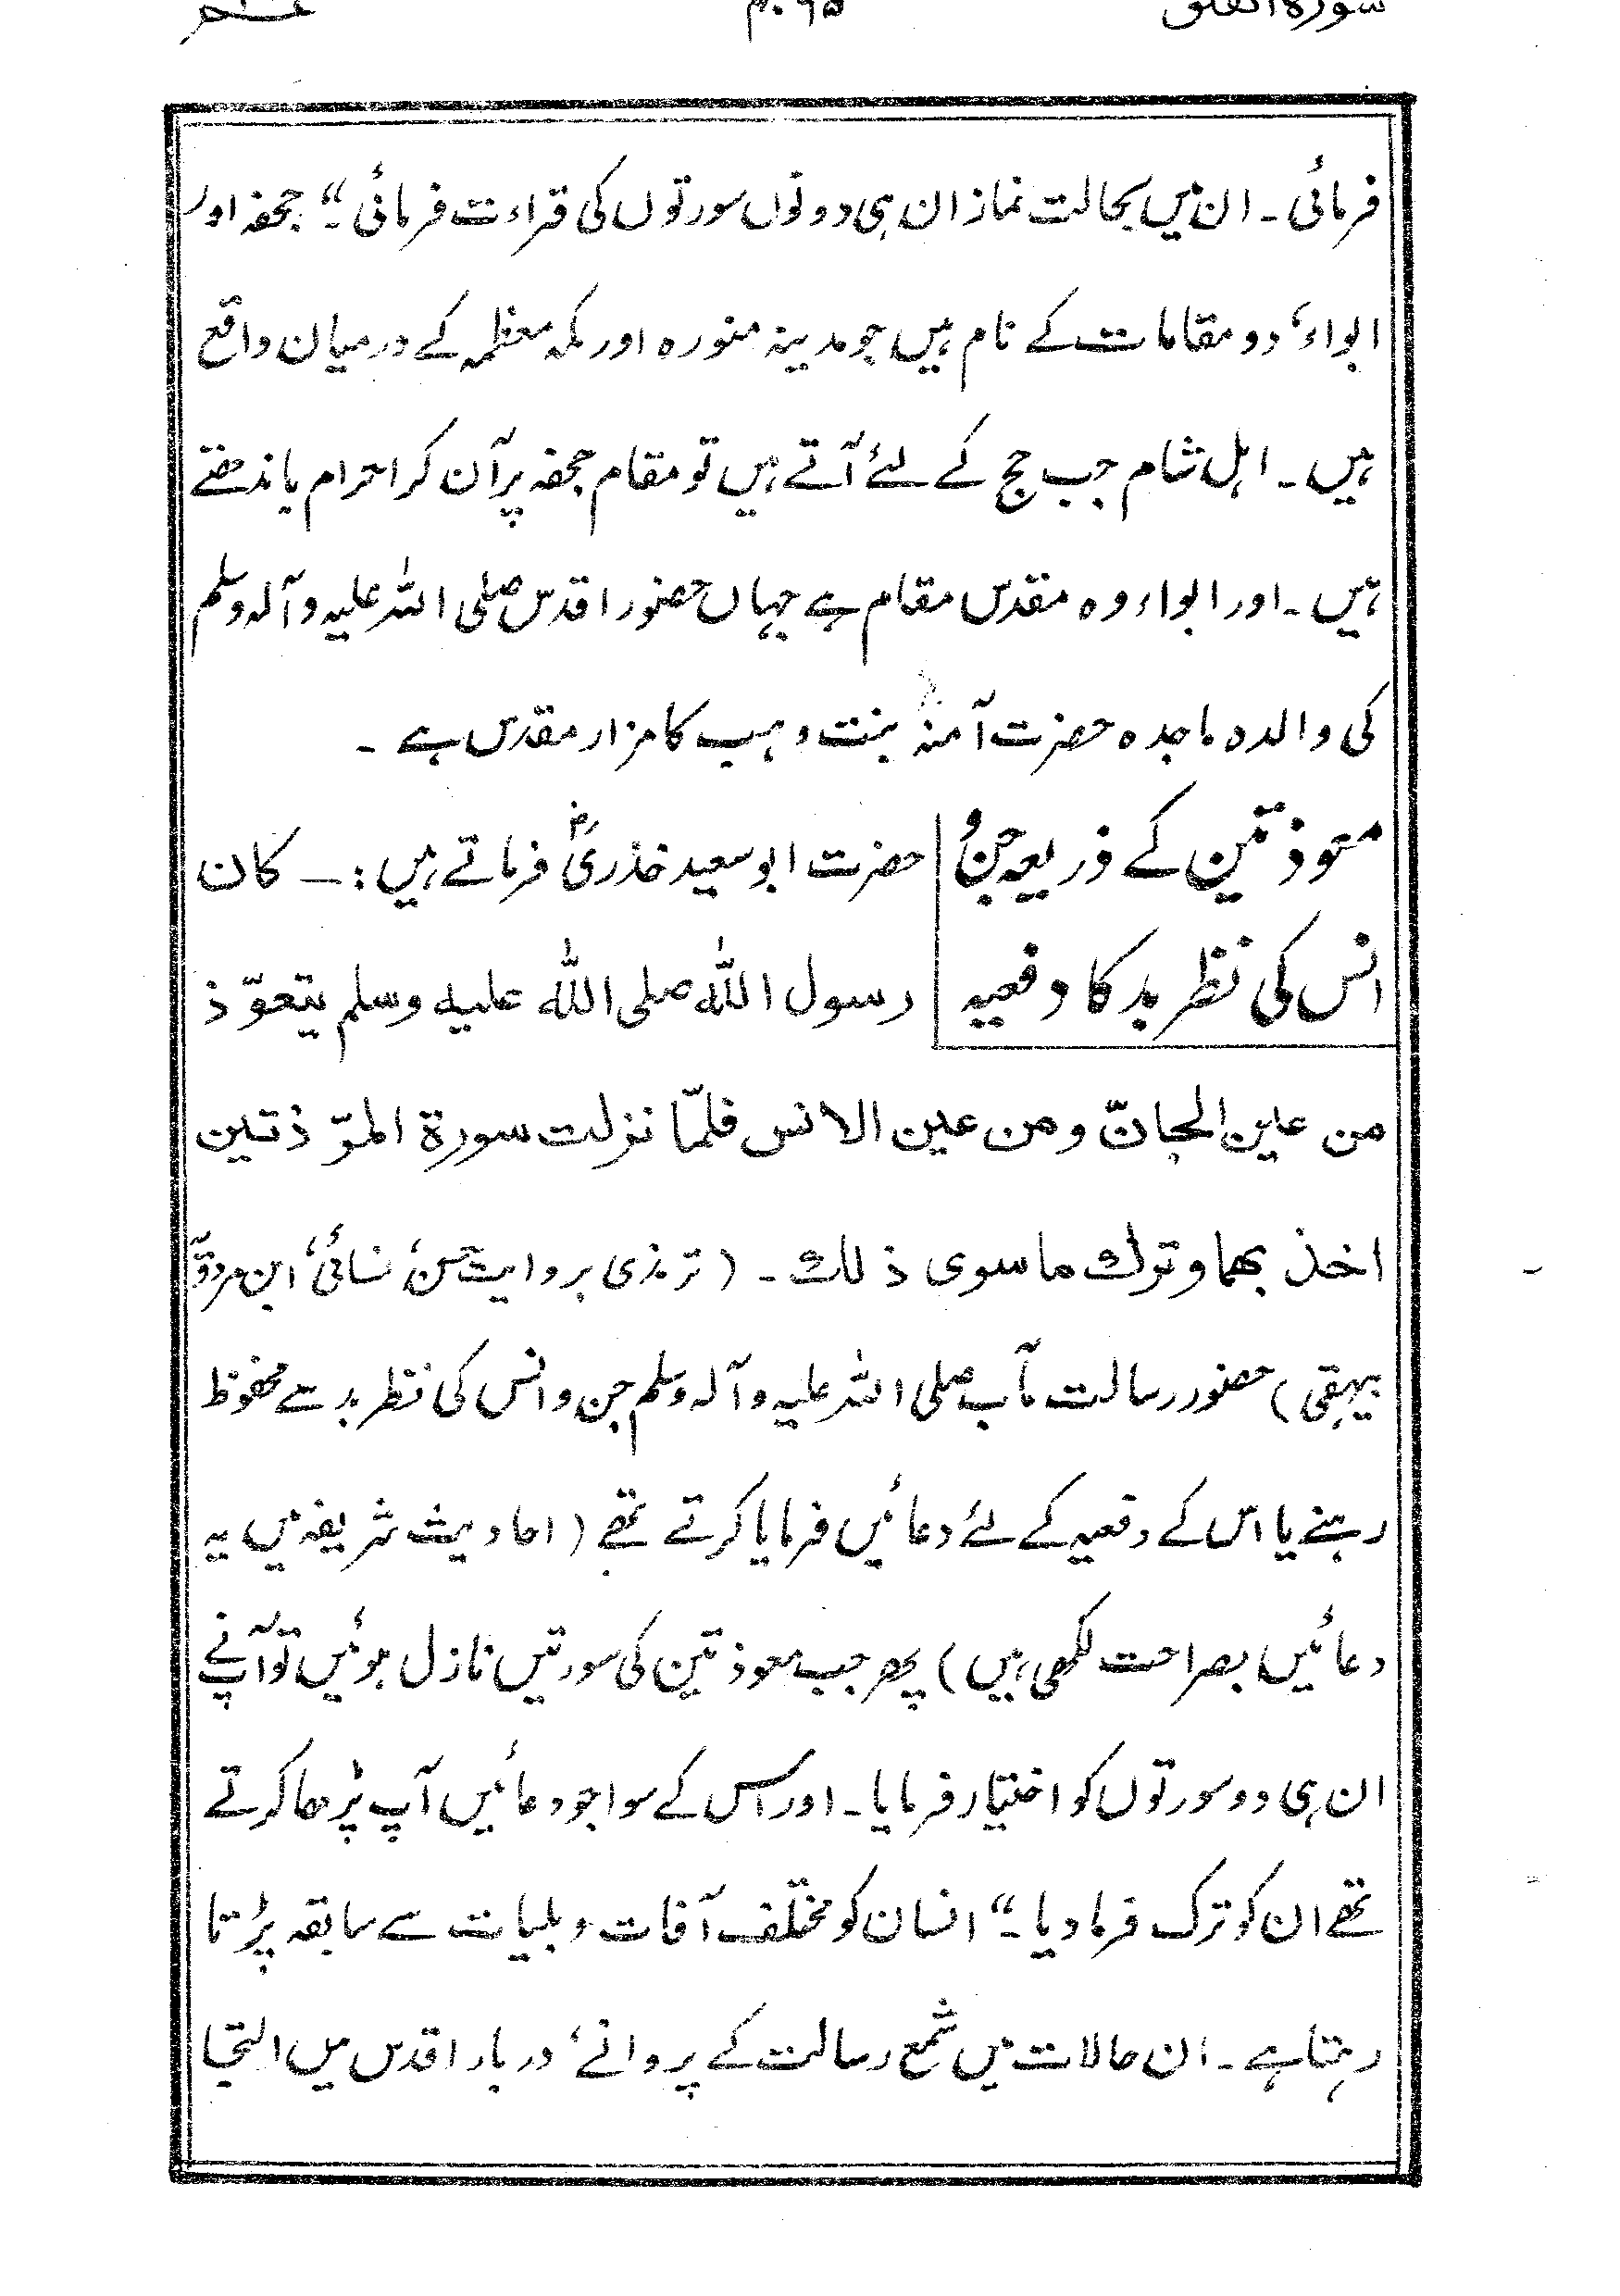 سورۃ الفلق
فرمائی ۔ ان میں بحالت نماز ان ہی دونوں سورتوں کی قراءت فرمائی ۔“ جحفہ اور
ابواء، دو مقامات کے نام ہیں جو مدینہ منورہ اور مکہ معظمہ کے درمیان واقع
ہیں ۔ اہل شام جب حج کے لئے آتے ہیں تو مقام جحفہ پر آن کر احرام باندھتے
ہیں ۔ اور ابواء وہ مقدس مقام ہے جہاں حضور اقدس صلی اللہ علیہ وآلہ وسلم
کی والدہ ماجدہ حضرت آمنہ بنت وہب کا مزار مقدس ہے ۔
معوذتین کے ذریعہ جن و
انس کی نظر بد کا دفعیہ
حضرت ابو سعید خذریؓ فرماتے ہیں :ـ کان
رسول اللہ صلی اللہ علیہ وسلم یتعوّذ
من عین الجانّ ومن عین الانس فلمّا نزلت سورۃ الموّذتین
اخذ بھما وترک ما سوی ذلک ۔ (ترمذی بروایت حسن، نسائی، ابن مردویہ
بیہقی) حضور رسالت مآب صلی اللہ علیہ وآلہ وسلم جن و انس کی نظر بد سے محفوظ
رہنے یا اس کے دفعیہ کے لئے دعائیں فرمایا کرتے تھے (احادیث شریفہ میں یہ
دعائیں بصراحت لکھی ہیں) پھر جب معوذتین کی سورتیں نازل ہوئیں تو آپ نے
ان ہی دو سورتوں کو اختیار فرمایا ۔ اور اس کے سوا جو دعائیں آپ پڑھا کرتے
تھے ان کو ترک فرما دیا ۔“ انسان کو مختلف آفات و بلیات سے سابقہ پڑتا
رہتا ہے ۔ ان حالات میں شمع رسالت کے پروانے، دربار اقدس میں التجا